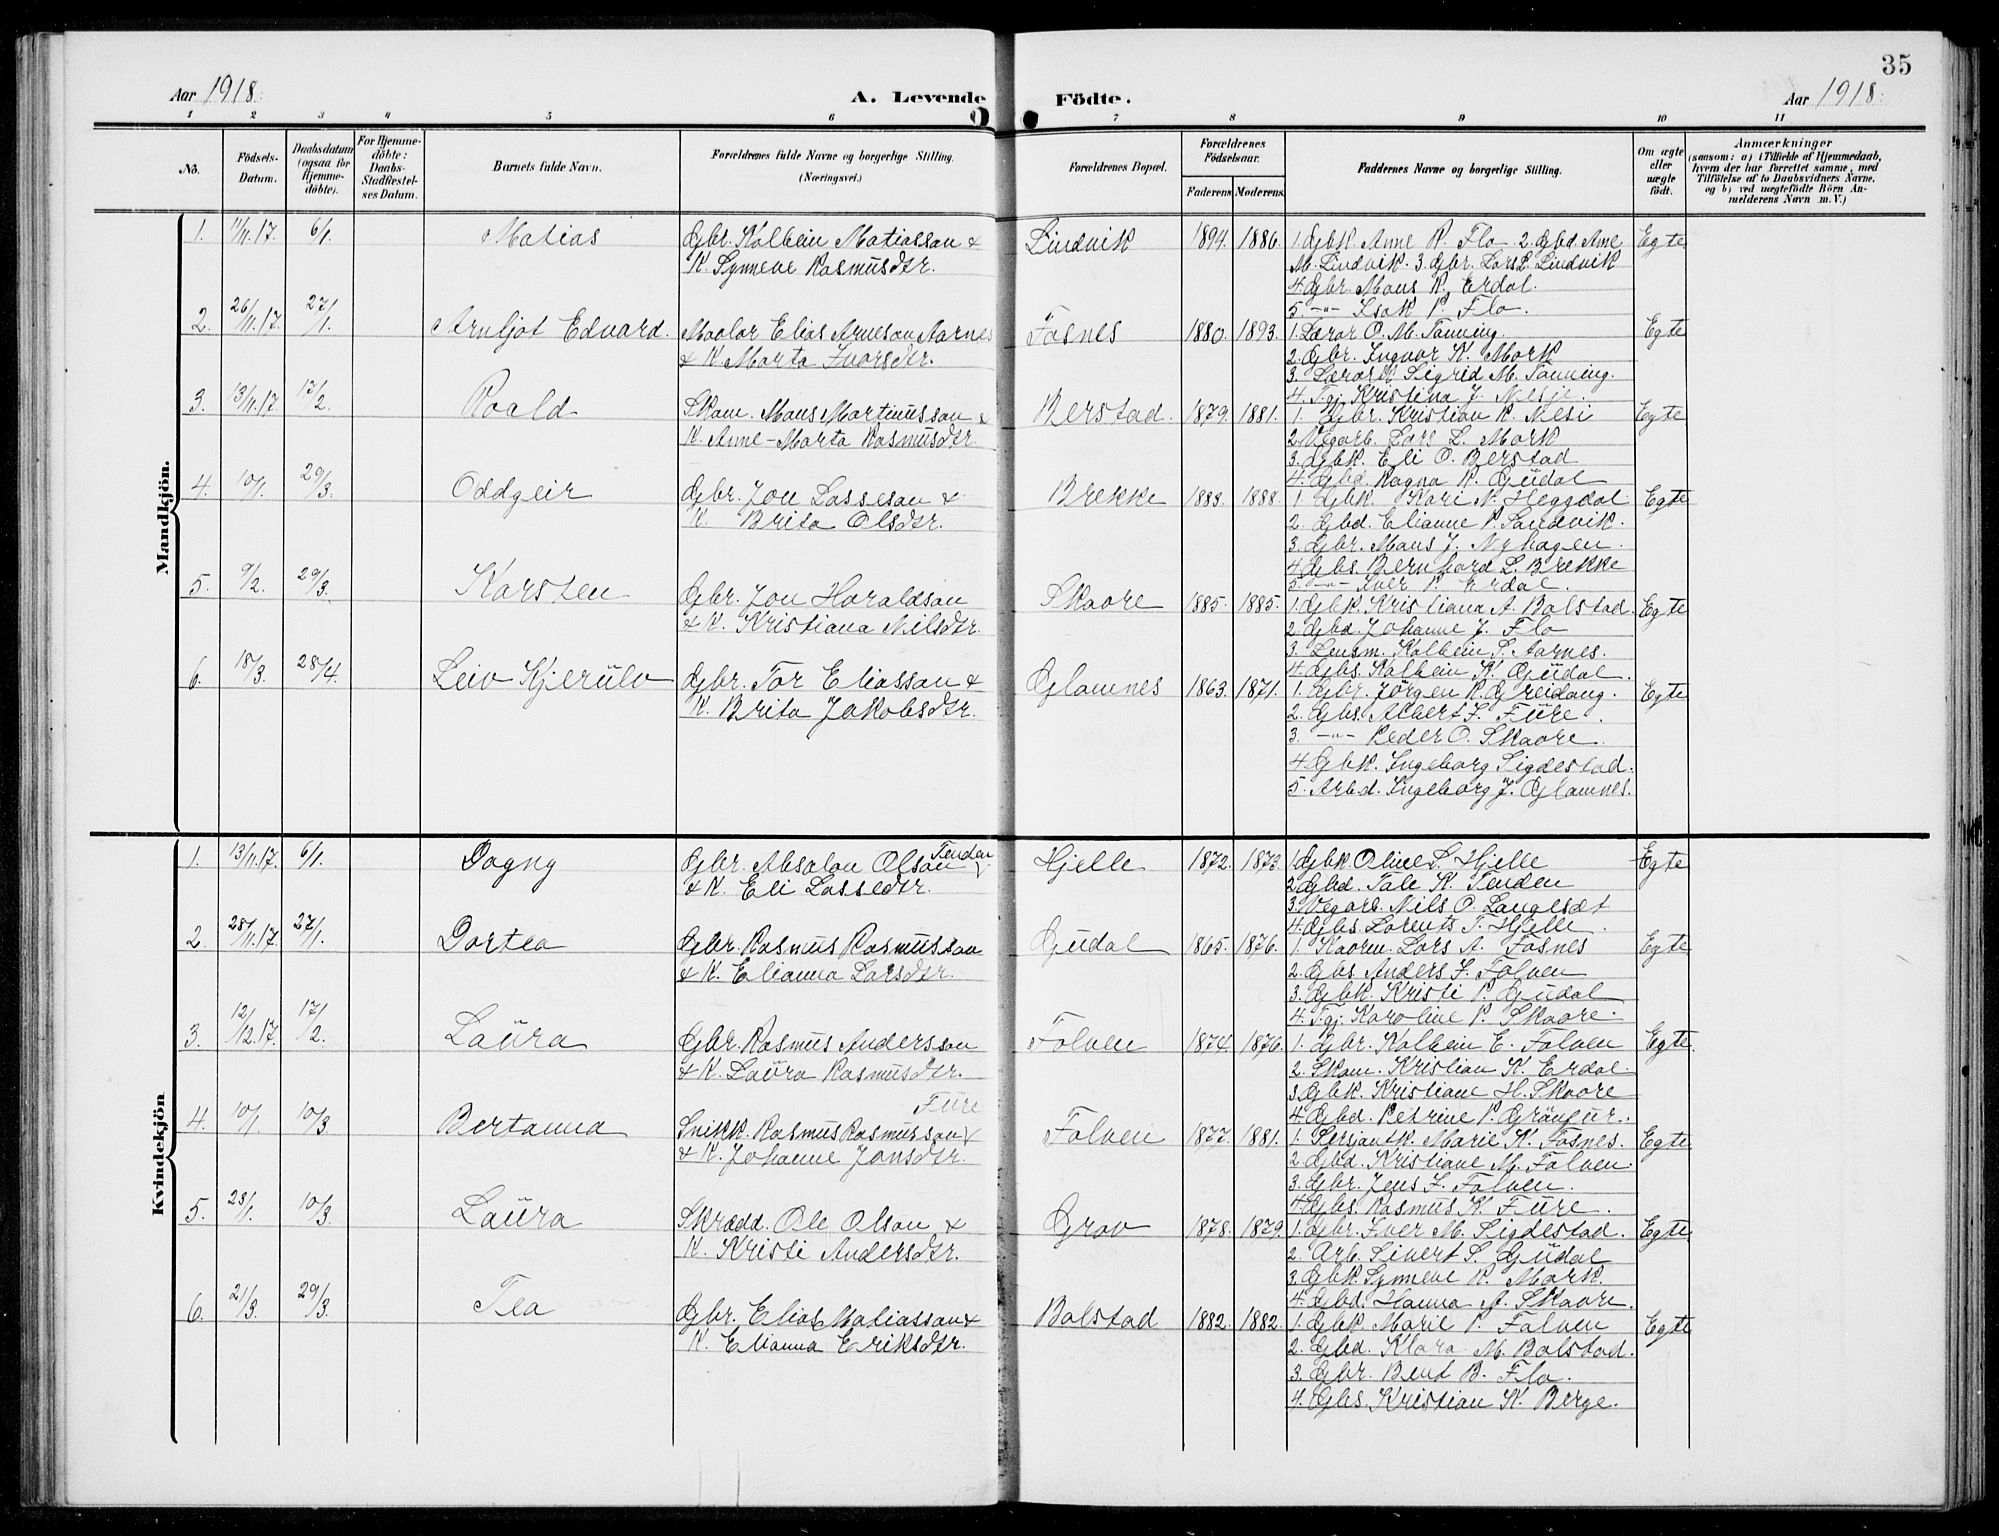 35
Aar 1918. A. Levende Födte. Aar 1918.
1 2 3 4 5 6 7 8 9 10 11
No.
Födsels-
Datum.
Daabsdatum
(ogsaa for
Hjemme-
döbte).
For Hjemme-
döbte:
Daabs-
Stadfæstel-
ses Datum.
Barnets fulde Navn.
Forældrenes fulde Navne og borgerlige Stilling.
(Næringsvei.)
Forældrenes Bopæl.
Forældrenes
Födselsaar.
Faderens. Moderens.
Faddernes Navne og borgerlige Stilling.
Om ægte
eller
uægte
födt.
Anmærkninger
(saasom: a) i Tilfælde af Hjemmedaab,
hvem der har forrettet samme, med
Tilföielse af to Daabsvidners Navne,
og b) ved uægtefödte Börn An-
melderens Navn m. V.)
Mandkjön.
1. 11/11.17. 6/1. Matias
Gbr. Kolbein Matiasson &
K. Synneve Rasmusdtr.
Lindvik 1894. 1886.
1. Gbk. Anne R. Flo 2. Gbd. Ane
M. Lindvik. 3. Gbr. Lars L. Lindvik
4. Gbr. Mons R. Erdal.
5. -"- Isak P. Flo.
Egte
2. 26/11.17. 27/1. Arnljot Edvard.
Maalar Elias Arneson Aarnes
& K. Marta Ivarsdtr.
Fosnes 1880. 1893.
1. Lærar O. M. Tonning.
2. Gbr. Ingvar K. Mork
3. Lærark. Sigrid M. Tonning.
4. Tgj. Kristina J. Nesje.
Egte
3. 13/11.17. 17/2. Roald
Skom. Mons Martinusson &
K. Anne-Marta Rasmusdtr
Berstad. 1879. 1881.
1. Gbr. Kristian R. Nesi
2. Vegarb. Lars L. Mork
3. Gbk. Eli O. Berstad
4. Gbd. Ragna R. Gjudal
Egte
4. 10/1. 29/3. Oddgeir
Gbr. Jon Lasseson &
K. Brita Olsdtr.
Brekke 1883. 1888.
1. Gbk. Kari N. Heggdal.
2. Gbd. Elianne P. Sandvik.
3. Gbr. Mons J. Nyhagen.
4. Gbs. Bernhard L. Brekke
5. -"- Iver P. Erdal.
Egte
5. 9/2. 29/3. Karsten
Gbr. Jon Haraldson
& K. Kristiana Nilsdtr.
Skaare 1885. 1885.
1. Gbk. Kristiana A. Bolstad.
2. Gbd. Johanne J. Flo
3. Lensm. Kolbein S. Aarnes.
4. Gbs. Kolbein K. Gjudal.
Egte
6. 18/3. 28/4. Leiv Kjerülv
Gbr. Tor Eliasson &
K. Brita Jakobsdtr.
Glomnes 1863. 1871.
1. Gbr. Jörgen R. Greidang.
2. Gbs. Albert S. Füre.
3. -"- Peder O. Skaare.
4. Gbk. Ingeborg Sigdestad.
5. Arbd. Ingeborg J. Glomnes.
Egte
Kvindekjön
1. 13/11.17. 6/1. Dagny
Gbr. Absalon Olson Tenden
& K. Eli Lassedtr.
Hjelle 1872. 1873.
1. Gbk. Oline S. Hjelle
2. Gbd. Tale K. Tenden
3. Vegarb. Nils O. Langesæt
4. Gbs. Lorents T. Hjelle.
Egte
2. 28/11.17. 27/1. Dortea
Gbr. Rasmus Rasmusson
& K. Elianna Larsdtr.
Gjudal 1865. 1876.
1. Kaarm. Lars A. Fosnes
2. Gbs. Anders S. Folven
3. Gbk. Kristi P. Gjudal
4. Tgj. Karoline P. Skaare.
Egte
3. 12/12.17. 17/2. Laüra
Gbr. Rasmus Andersson
& K. Laüra Rasmusdtr.
Folven 1874. 1876.
1. Gbr. Kolbein E. Folven
2. Skom. Kristian K. Erdal.
3. Gbk. Kristiane H. Skaare
4. Gbd. Petrine P. Gränfur.
Egte
4. 10/1. 10/3. Bertanna
Füre
Snikk. Rasmus Rasmusson &
& K. Johanne Jonsdtr.
Folven 1877. 1881.
1. Sersjantk. Marie K. Fosnes.
2. Gbd. Kristiane M. Folven.
3. Gbr. Jens S. Folven.
4. Gbs. Rasmus K. Füre.
Egte
5. 23/1. 10/3. Laüra
Skrædd. Ole Olson &
K. Kristi Andersdtr.
Grov 1878. 1879.
1. Gbr. Iver M. Sigdestad.
2. Arb. Sivert S. Gjudal
3. Gbk. Synneve R. Mork.
4. Gbd. Hanna A. Skaare.
Egte
6. 21/3. 29/3. Tea
Gbr. Elias Matiasson &
K. Elianna Eriksdtr.
Bolstad 1882. 1882.
1. Gbk. Marie P. Folven
2. Gbd. Klara M. Bolstad.
3. Gbr. Bent B. Flo.
4. Gbs. Kristian K. Berge.
Egte